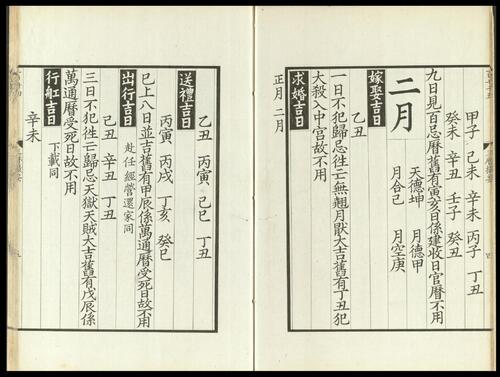 甲子 己未 辛未 丙子 丁丑
癸未 辛丑 壬子 癸丑
九日見百忌曆舊有寅亥日係建收日官曆不用
二月
天德坤 月德甲
月合己 月空庚
嫁娶吉日
乙丑
一日不犯歸忌徃亡無翹月猒大吉舊有丁丑犯
大殺入中宮故不用
求婚吉日
正月 二月
乙丑 丙寅 己巳 丁丑
送禮吉日
丙寅 丙戌 丁亥 癸巳
巳上八日並吉舊有甲辰係萬通曆受死日故不用
出行吉日
赴任 經營還家同
己丑 辛丑 丁丑
三日不犯徃亡歸忌天獄天賊大吉舊有戊辰係
萬通曆受死日故不用
行舡吉日
下載同
辛未